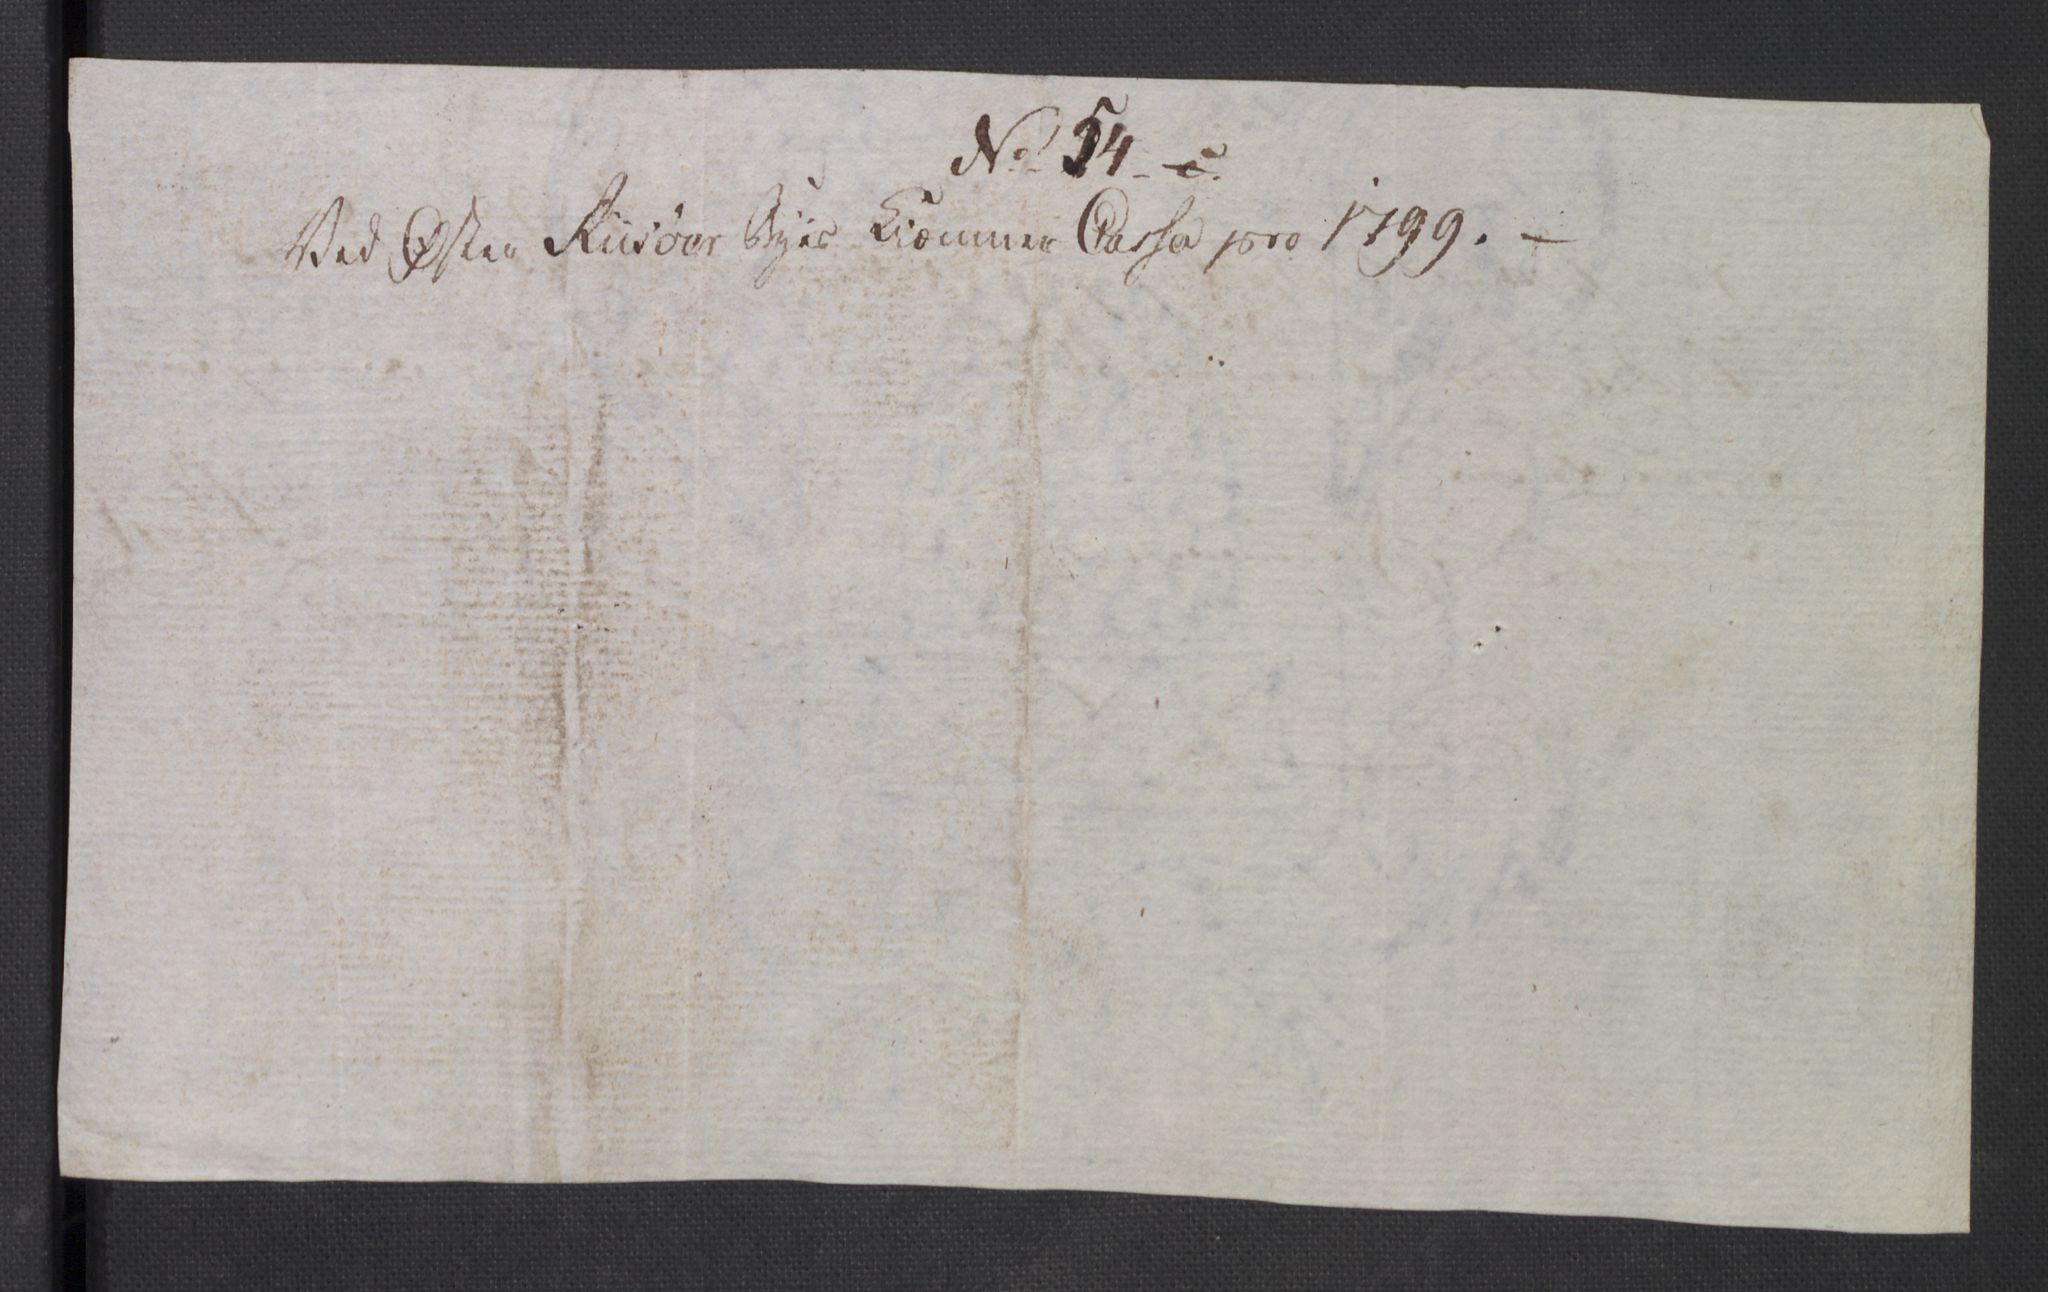 No 54. c.
Ved Øster Riisøer Byes Kiæmner Cassa pro 1799. —